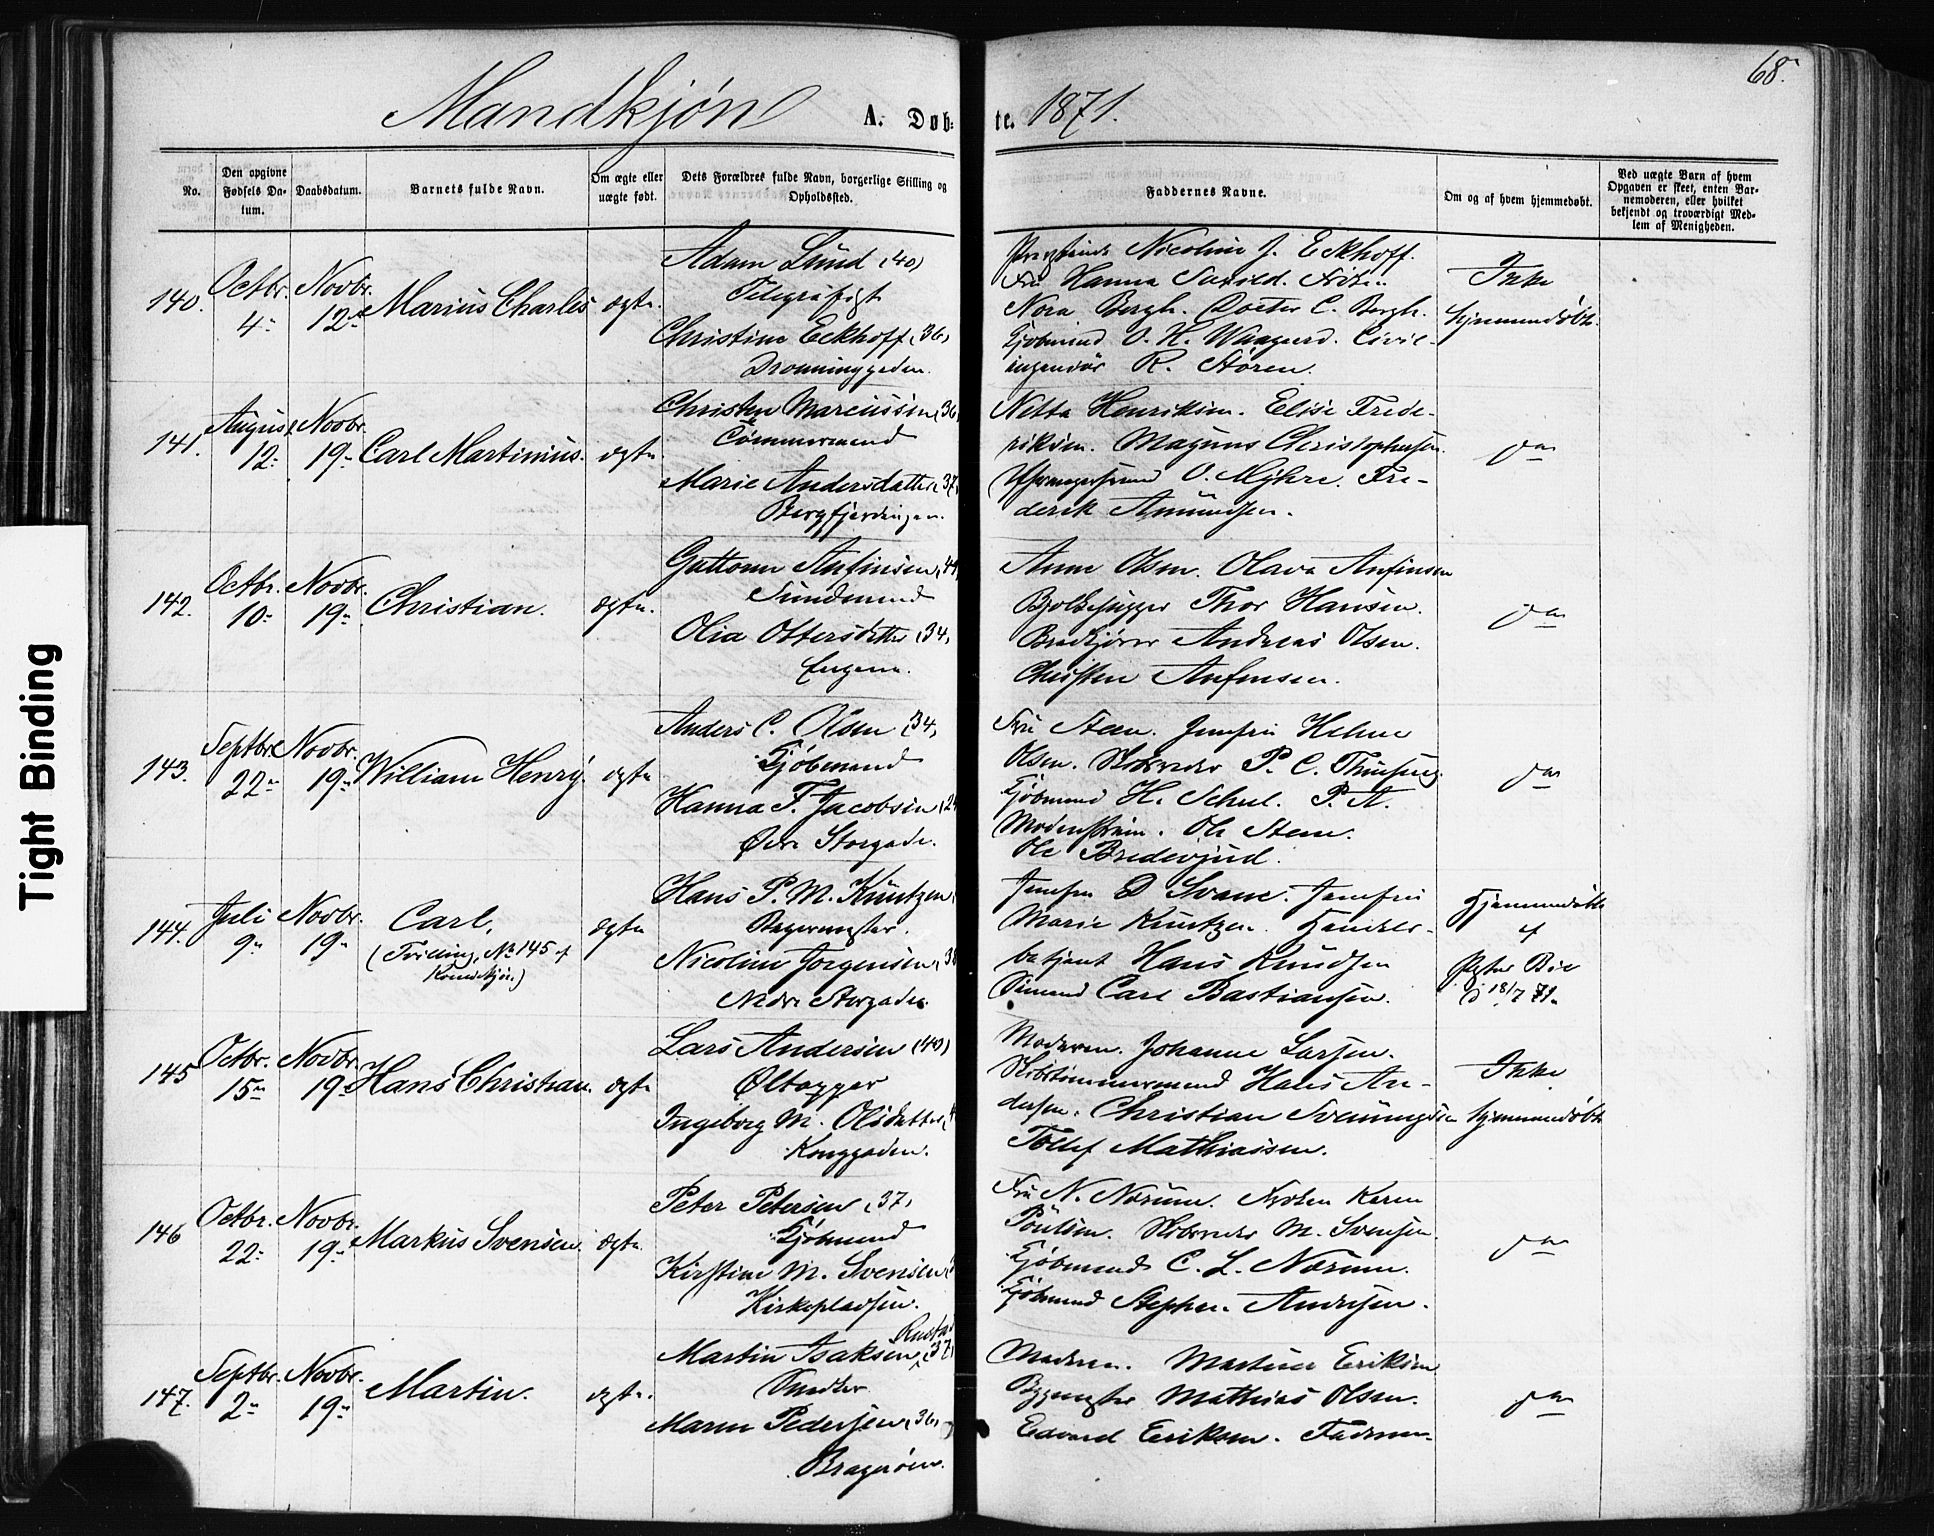 68.
Mandkjøn A. Døb-
te. 1871.
No.
Den opgivne Fødsels Da-
tum.
Daabsdatum.
Barnets fulde Navn.
Om ægte eller
uægte født.
Dets Forældres fulde Navn, borgerlige Stilling og
Opholdssted.
Faddernes Navne.
Om og af hvem hjemmedøbt.
Ved uægte Barn af hvem
Opgaven er skeet, enten Bar-
nemoderen, eller hvilket
bekjendt og troværdigt Med-
lem af Menigheden.
140.
Octbr.
4
Novbr.
12
Marius Charles
ægte
Adam Lund (40)
Telegrafist
Christine Eckhoff (36)
Dronninggaden.
Nicoline J. Eckhoff.
Fru Hanna
Nora Bergh. Doctor C. Bergh.
Kjøbmand O. H. Waagaard. Civil-
ingeniør R. Støren.
Ikke
hjemmedøbt.
141.
August
12
Novbr.
19
Carl Martinius.
ægte
Christen Marcussen (36
Tømmermand
Marie Andersdatter (37)
Bergfjerdingen.
Netta Henriksen. Elise Frede-
riksen. Magnus Christophersen.
O. Myhre. Fre-
derik Amundsen.
142.
Octbr.
10
Novbr.
19
Christian.
ægte.
Guttorm Anfinsen (44
Olia Ottersdatter (34)
Engene.
Anne Olsen. Olava Anfinsen
Bjelkehugger Thor Hansen.
Brødkjører Andreas Olsen.
Christen Anfinsen.
143.
Septbr.
22
Novbr.
19
William Henry
ægte
Anders C. Olsen (34)
Kjøbmand
Hanna F. Jacobsen (24
Øvre Storgade.
Fru Steen. Jomfru Helene
Olsen. Skibsreder P. C.
Kjøbmand H. Schul. P. A.
Ole Steen.
Ole
144.
Juli
9
Novbr.
19
Carl,
(Tvilling, No 145 af
Kvindekjøn.)
ægte
Hans P. M. Küntzen
Bagermester.
Nicoline Jørgensen (38
Nedre Storgade.
Jomfru D Svane. Jomfru
Marie Kuntzen. Handels-
betjent Hans Knudsen
Sømand Carl Bastiansen.
Hjemmedøbt
af
Pastor Bie
18/7 71.
145
Octbr.
15
Novbr.
19
Hans Christian.
ægte
Lars Andersen (40)
Øltapper
Ingeborg M. Olsdatter
Konggaden.
Moderen. Johanne Larsen.
Skibstømmermand Hans An-
dersen. Christian Svenningsen
Tollef Mathiassen.
Ikke
hjemmedøbt
146
Octbr.
22
Novbr.
19
Markus Svensen.
ægte
Peter Petersen (37)
Kjøbmand
Kirstine M. Svensen
Kirkepladsen.
Fru N. Nærum. Frøken Karen
Poulsen. Skibsreder M. Svensen.
Kjøbmand C. L. Nærum.
Kjøbmand Stephen Andersen.
147.
Septbr.
2
Novbr.
19
Martin.
ægte.
Martin Isaksen (37)
Smeder
Maren Pedersen (36)
Bragerøen.
Moderen. Martine Eriksen
Bygmester Mathias Olsen.
Edvard Eriksen. Faderen
Tight Binding